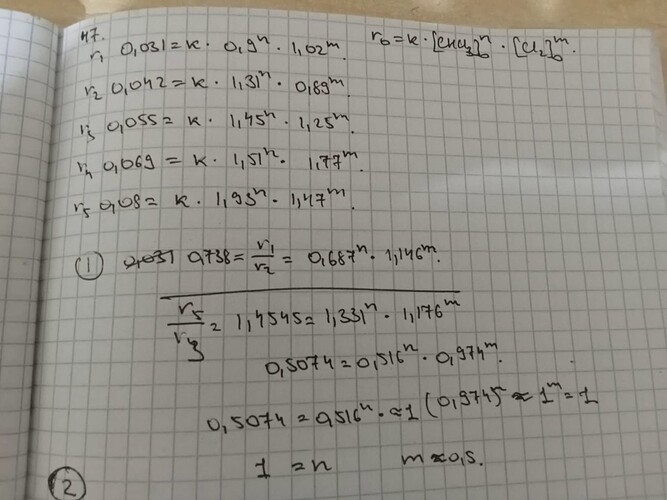 47.
r1 0,031 = k · 0,9ⁿ · 1,02ᵐ. r0 = k · [CHCl3]0ⁿ · [Cl2]0ᵐ.
r2 0,042 = k · 1,31ⁿ · 0,89ᵐ.
r3 0,055 = k · 1,45ⁿ · 1,25ᵐ.
r4 0,069 = k · 1,51ⁿ · 1,77ᵐ.
r5 0,08 = k · 1,93ⁿ · 1,47ᵐ.
① 0,031 0,738 = r1/r2 = 0,687ⁿ · 1,146ᵐ.
r5/r3 = 1,4545 = 1,331ⁿ · 1,176ᵐ
0,5074 = 0,516ⁿ · 0,974ᵐ.
0,5074 = 0,516ⁿ · ≈1 (0,974)ᵐ ≈ 1ᵐ = 1
1 = n m ≈ 0,5.
②